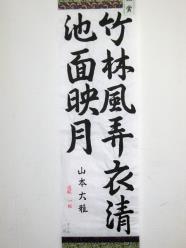 竹林風弄衣清
池面映月
山本大雅
賞